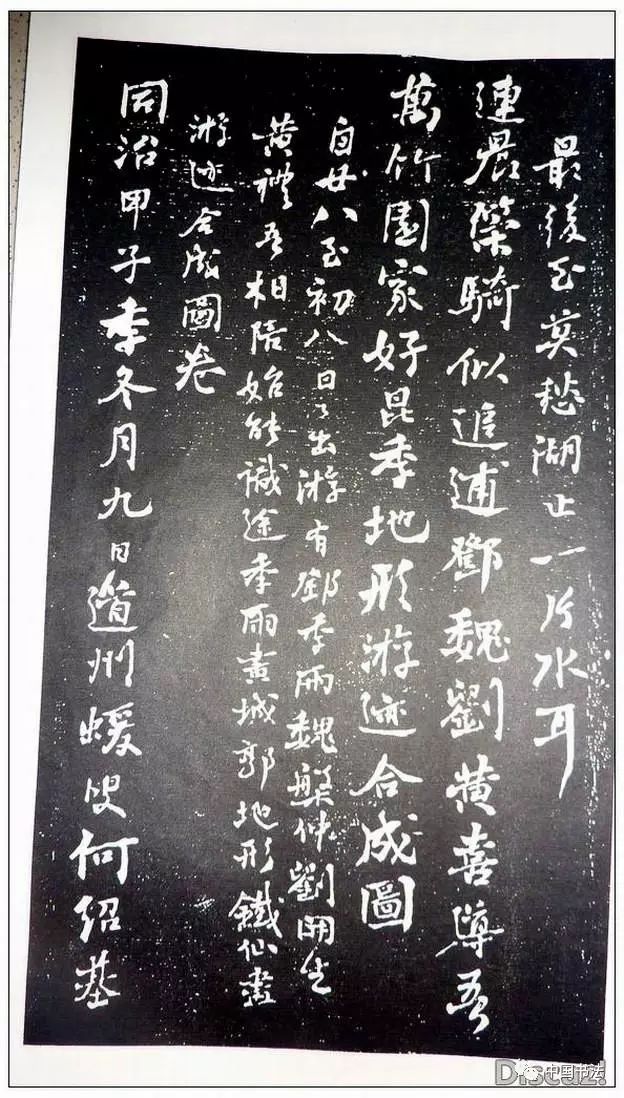 最後至莫愁湖止一片水耳
連晨榮騎似追逋鄧魏劉黃喜導吾
萬竹園家好昆季地形游迹合成圖
自廿八至初八日日出游有鄧季雨魏槃仲劉開生
黃襍吾相陪始能識途季雨畫城郭地形鐵仙畫
游迹合成圖卷
同治甲子季冬月九日道州蝯叟何紹基
中国书法
Discuz!